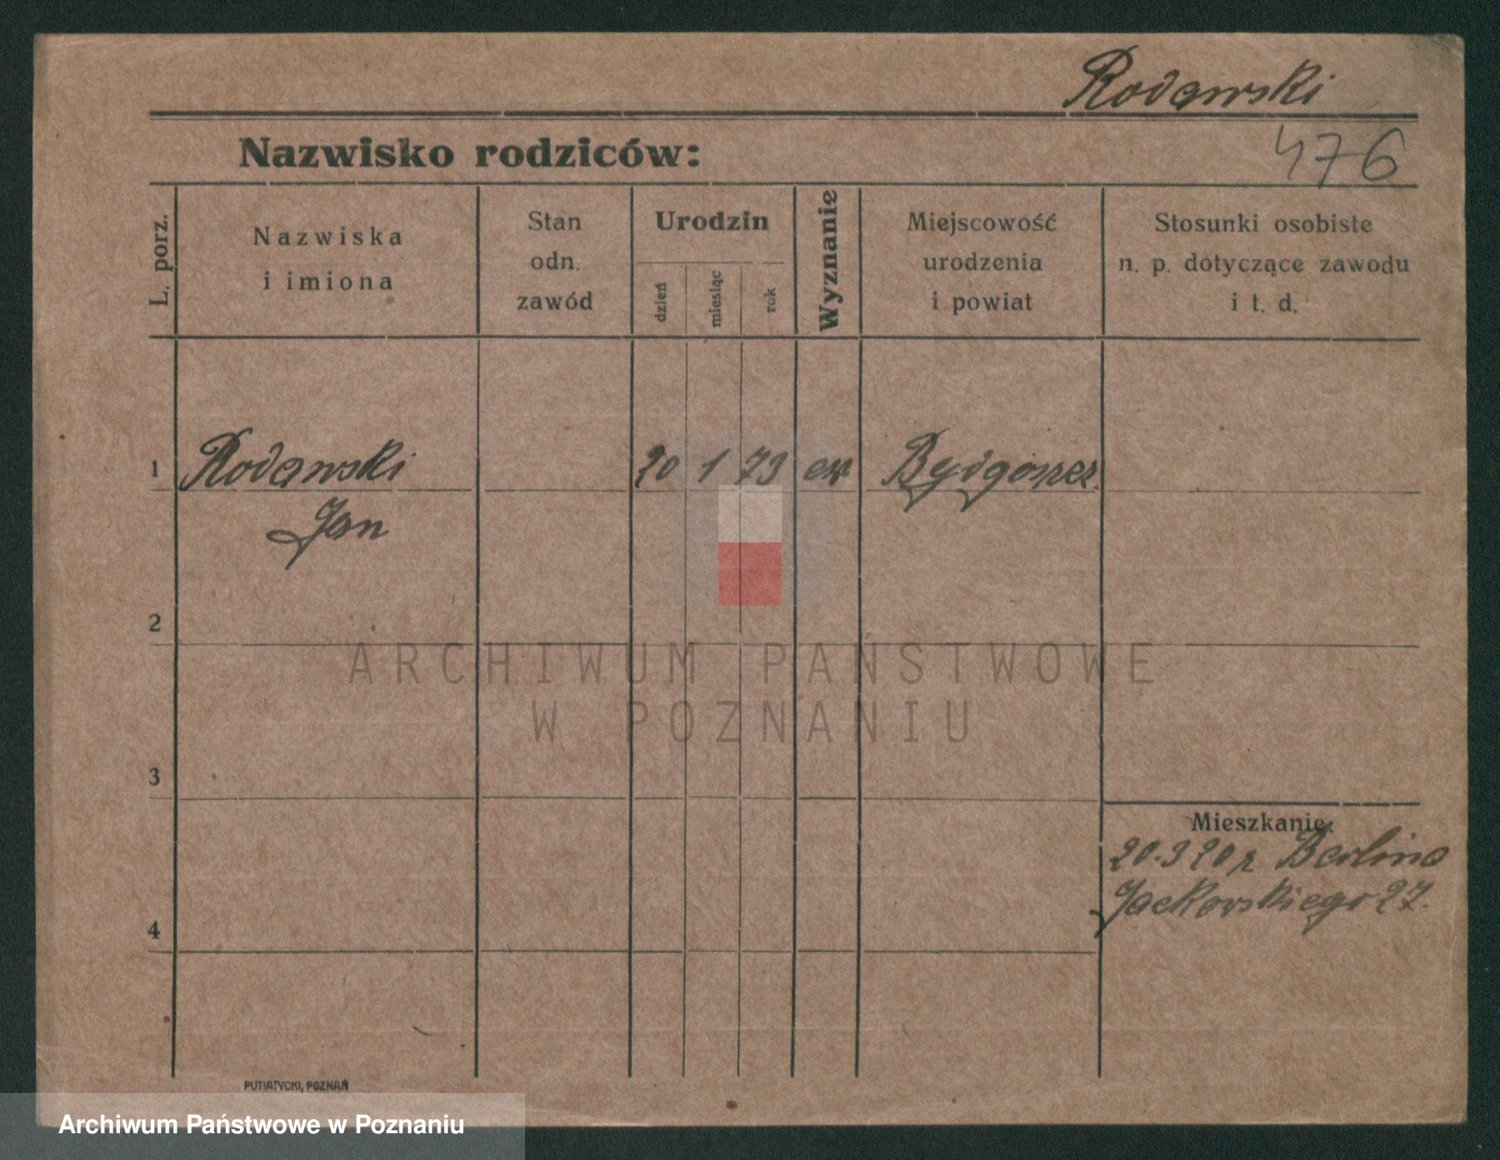 Rodawski
476
Nazwisko rodziców:
L. porz.
Nazwiska
i imiona
Stan
odn.
zawód
Urodzin
dzień
miesiąc
rok
Wyznanie
Miejscowość
urodzenia
i powiat
Stosunki osobiste
n. p. dotyczące zawodu
i t. d.
1 Rodawski 20 1 73 ew Bydgoszcz
Jan
2
ARCHIWUM PAŃSTWOWE
W POZNANIU
3
Mieszkanie:
20.3 20 r Berlina
Jackowskiego 27.
4
PUTIATYCKI, POZNAŃ
Archiwum Państwowe w Poznaniu